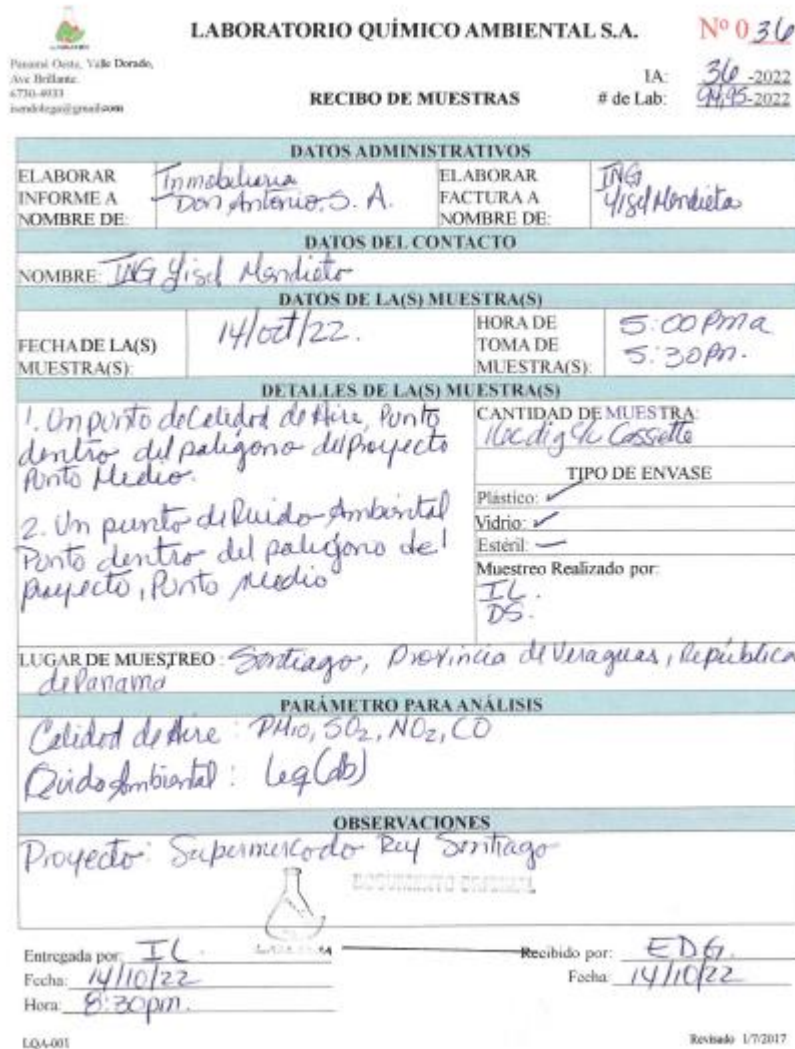 LABORATORIO QUÍMICO AMBIENTAL S.A.
Nº 0 36
Panamá Oeste, Valle Dorado,
Ave Brillante.
6730-4933
IA: 36 -2022
RECIBO DE MUESTRAS
# de Lab: 94,95-2022
DATOS ADMINISTRATIVOS
ELABORAR INFORME A NOMBRE DE: Inmobiliaria Don Antonio, S. A.
ELABORAR FACTURA A NOMBRE DE: ING Yisel Mendieta
DATOS DEL CONTACTO
NOMBRE: ING Yisel Mendieta
DATOS DE LA(S) MUESTRA(S)
FECHA DE LA(S) MUESTRA(S): 14/oct/22.
HORA DE TOMA DE MUESTRA(S): 5:00 Pm a 5:30 Pm.
DETALLES DE LA(S) MUESTRA(S)
1. Un punto de Calidad de Aire, Punto
dentro del polígono del proyecto
Punto Medio.
2. Un punto de Ruido Ambiental
Punto dentro del polígono del
proyecto, Punto Medio
CANTIDAD DE MUESTRA:
Cassette
TIPO DE ENVASE
Plástico: ✓
Vidrio: ✓
Estéril: —
Muestreo Realizado por:
IL.
DS.
LUGAR DE MUESTREO: Santiago, Provincia de Veraguas, República
de Panamá
PARÁMETRO PARA ANÁLISIS
Calidad de Aire: PM10, SO2, NO2, CO
Ruido Ambiental: Leq (db)
OBSERVACIONES
Proyecto: Supermercado Rey Santiago
DOCUMENTO ORIGINAL
Entregada por: IL
Recibido por: EDG.
Fecha: 14/10/22
Fecha: 14/10/22
Hora: 8:30pm.
LQA-001
Revisado 1/7/2017